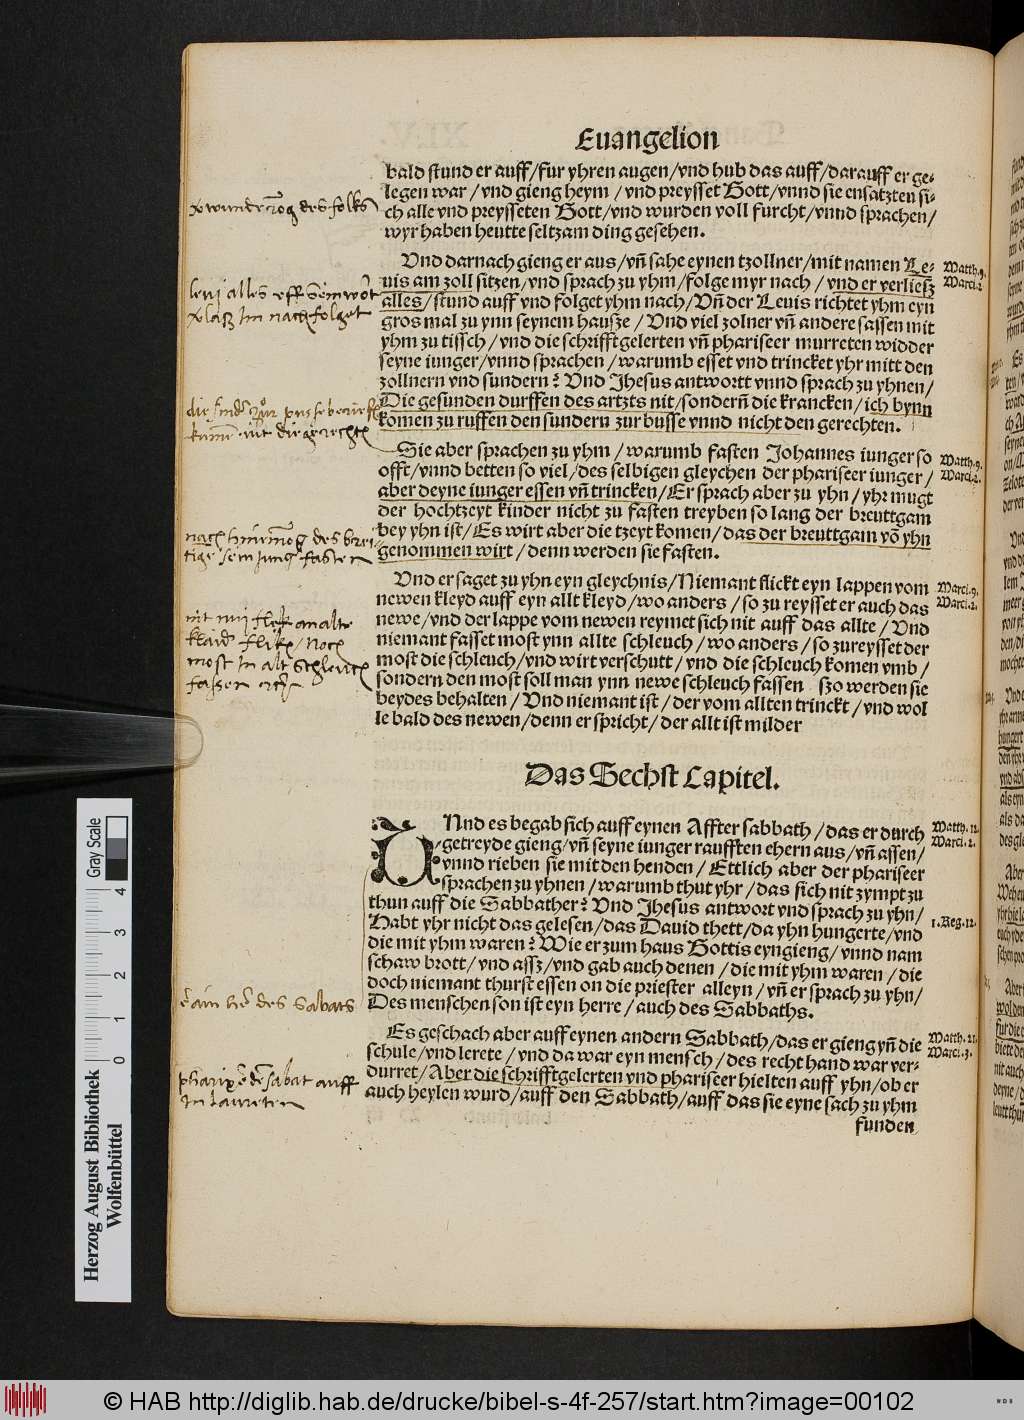 Euangelion
bald stund er auff/fur yhren augen/vnd hub das auff/darauff er ge⸗
legen war/vnd gieng heym/vnd preysset Gott/vnnd sie ensatzten si⸗
ch alle vnd preysseten Gott/vnd wurden voll furcht/vnnd sprachen/
wyr haben heutte seltzam ding gesehen.
Vnd darnach gieng er aus/vñ sahe eynen tzollner/mit namen Le⸗
uis am zoll sitzen/vnd sprach zu yhm/folge myr nach/vnd er verliesz
alles/stund auff vnd folget yhm nach/Vñ der Leuis richtet yhm eyn
gros mal zu ynn seynem hausze/Vnd viel zolner vñ andere sassen mit
yhm zu tissch/vnd die schrifftgelerten vñ phariseer murreten widder
seyne iunger/vnnd sprachen/warumb esset vnd trincket yhr mitt den
zollnern vnd sundern? Vnd Jhesus antwortt vnnd sprach zu yhnen/
Die gesunden durffen des artzts nit/sonderñ die krancken/ich bynn
kõmen zu ruffen den sundern zur busse vnnd nicht den gerechten.
Sie aber sprachen zu yhm/warumb fasten Johannes iunger so
offt/vnnd betten so viel/des selbigen gleychen der phariseer iunger/
aber deyne iunger essen vñ trincken/Er sprach aber zu yhn/yhr mugt
der hochtzeyt kinder nicht zu fasten treyben so lang der breuttgam
bey yhn ist/Es wirt aber die tzeyt komen/das der breuttgam võ yhn
genommen wirt/denn werden sie fasten.
Vnd er saget zu yhn eyn gleychnis/Niemant flickt eyn lappen vom
newen kleyd auff eyn allt kleyd/wo anders/so zu reysset er auch das
newe/vnd der lappe vom newen reymet sich nit auff das allte/Vnd
niemant fasset most ynn allte schleuch/wo anders/so zureysset der
most die schleuch/vnd wirt verschutt/vnd die schleuch komen vmb/
sondern den most soll man ynn newe schleuch fassen szo werden sie
beydes behalten/Vnd niemant ist/der vom allten trinckt/vnd wol
le bald des newen/denn er spricht/der allt ist milder
Das Sechst Capitel.
VNnd es begab sich auff eynen Affter sabbath/das er durch
getreyde gieng/vñ seyne iunger raufften ehern aus/vñ assen/
vnnd rieben sie mit den henden/Ettlich aber der phariseer
sprachen zu yhnen/warumb thut yhr/das sich nit zympt zu
thun auff die Sabbather? Vnd Jhesus antwort vnd sprach zu yhn/
Habt yhr nicht das gelesen/das Dauid thett/da yhn hungerte/vnd
die mit yhm waren? Wie er zum haus Gottis eyngieng/vnnd nam
schaw brott/vnd assz/vnd gab auch denen/die mit yhm waren/die
doch niemant thurst essen on die priester alleyn/vñ er sprach zu yhn/
Des menschen son ist eyn herre/auch des Sabbaths.
Es geschach aber auff eynen andern Sabbath/das er gieng yñ die
schule/vnd lerete/vnd da war eyn mensch/des recht hand war ver⸗
durret/Aber die schrifftgelerten vnd phariseer hielten auff yhn/ob er
auch heylen wurd/auff den Sabbath/auff das sie eyne sach zu yhm
funden
Matth. 9.
Marci. 2
Matth. 9.
Marci. 2.
Marci. 9.
Marci. 2.
Matth. 12
Marci. 2.
1. Reg. 12.
Matth. 21.
Marci. 3.
des folks
levi alles
im nachfolget
nit
flek an alte
klaid fliken/noch
most in alt schleuch
fassen
des sabats
sabat auff
Herzog August Bibliothek
Wolfenbüttel
Gray Scale
0 1 2 3 4
© HAB http://diglib.hab.de/drucke/bibel-s-4f-257/start.htm?image=00102